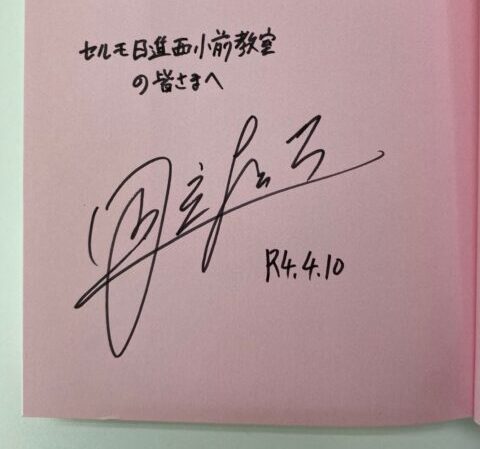 セルモ日進西小前教室
の皆さまへ
R4.4.10